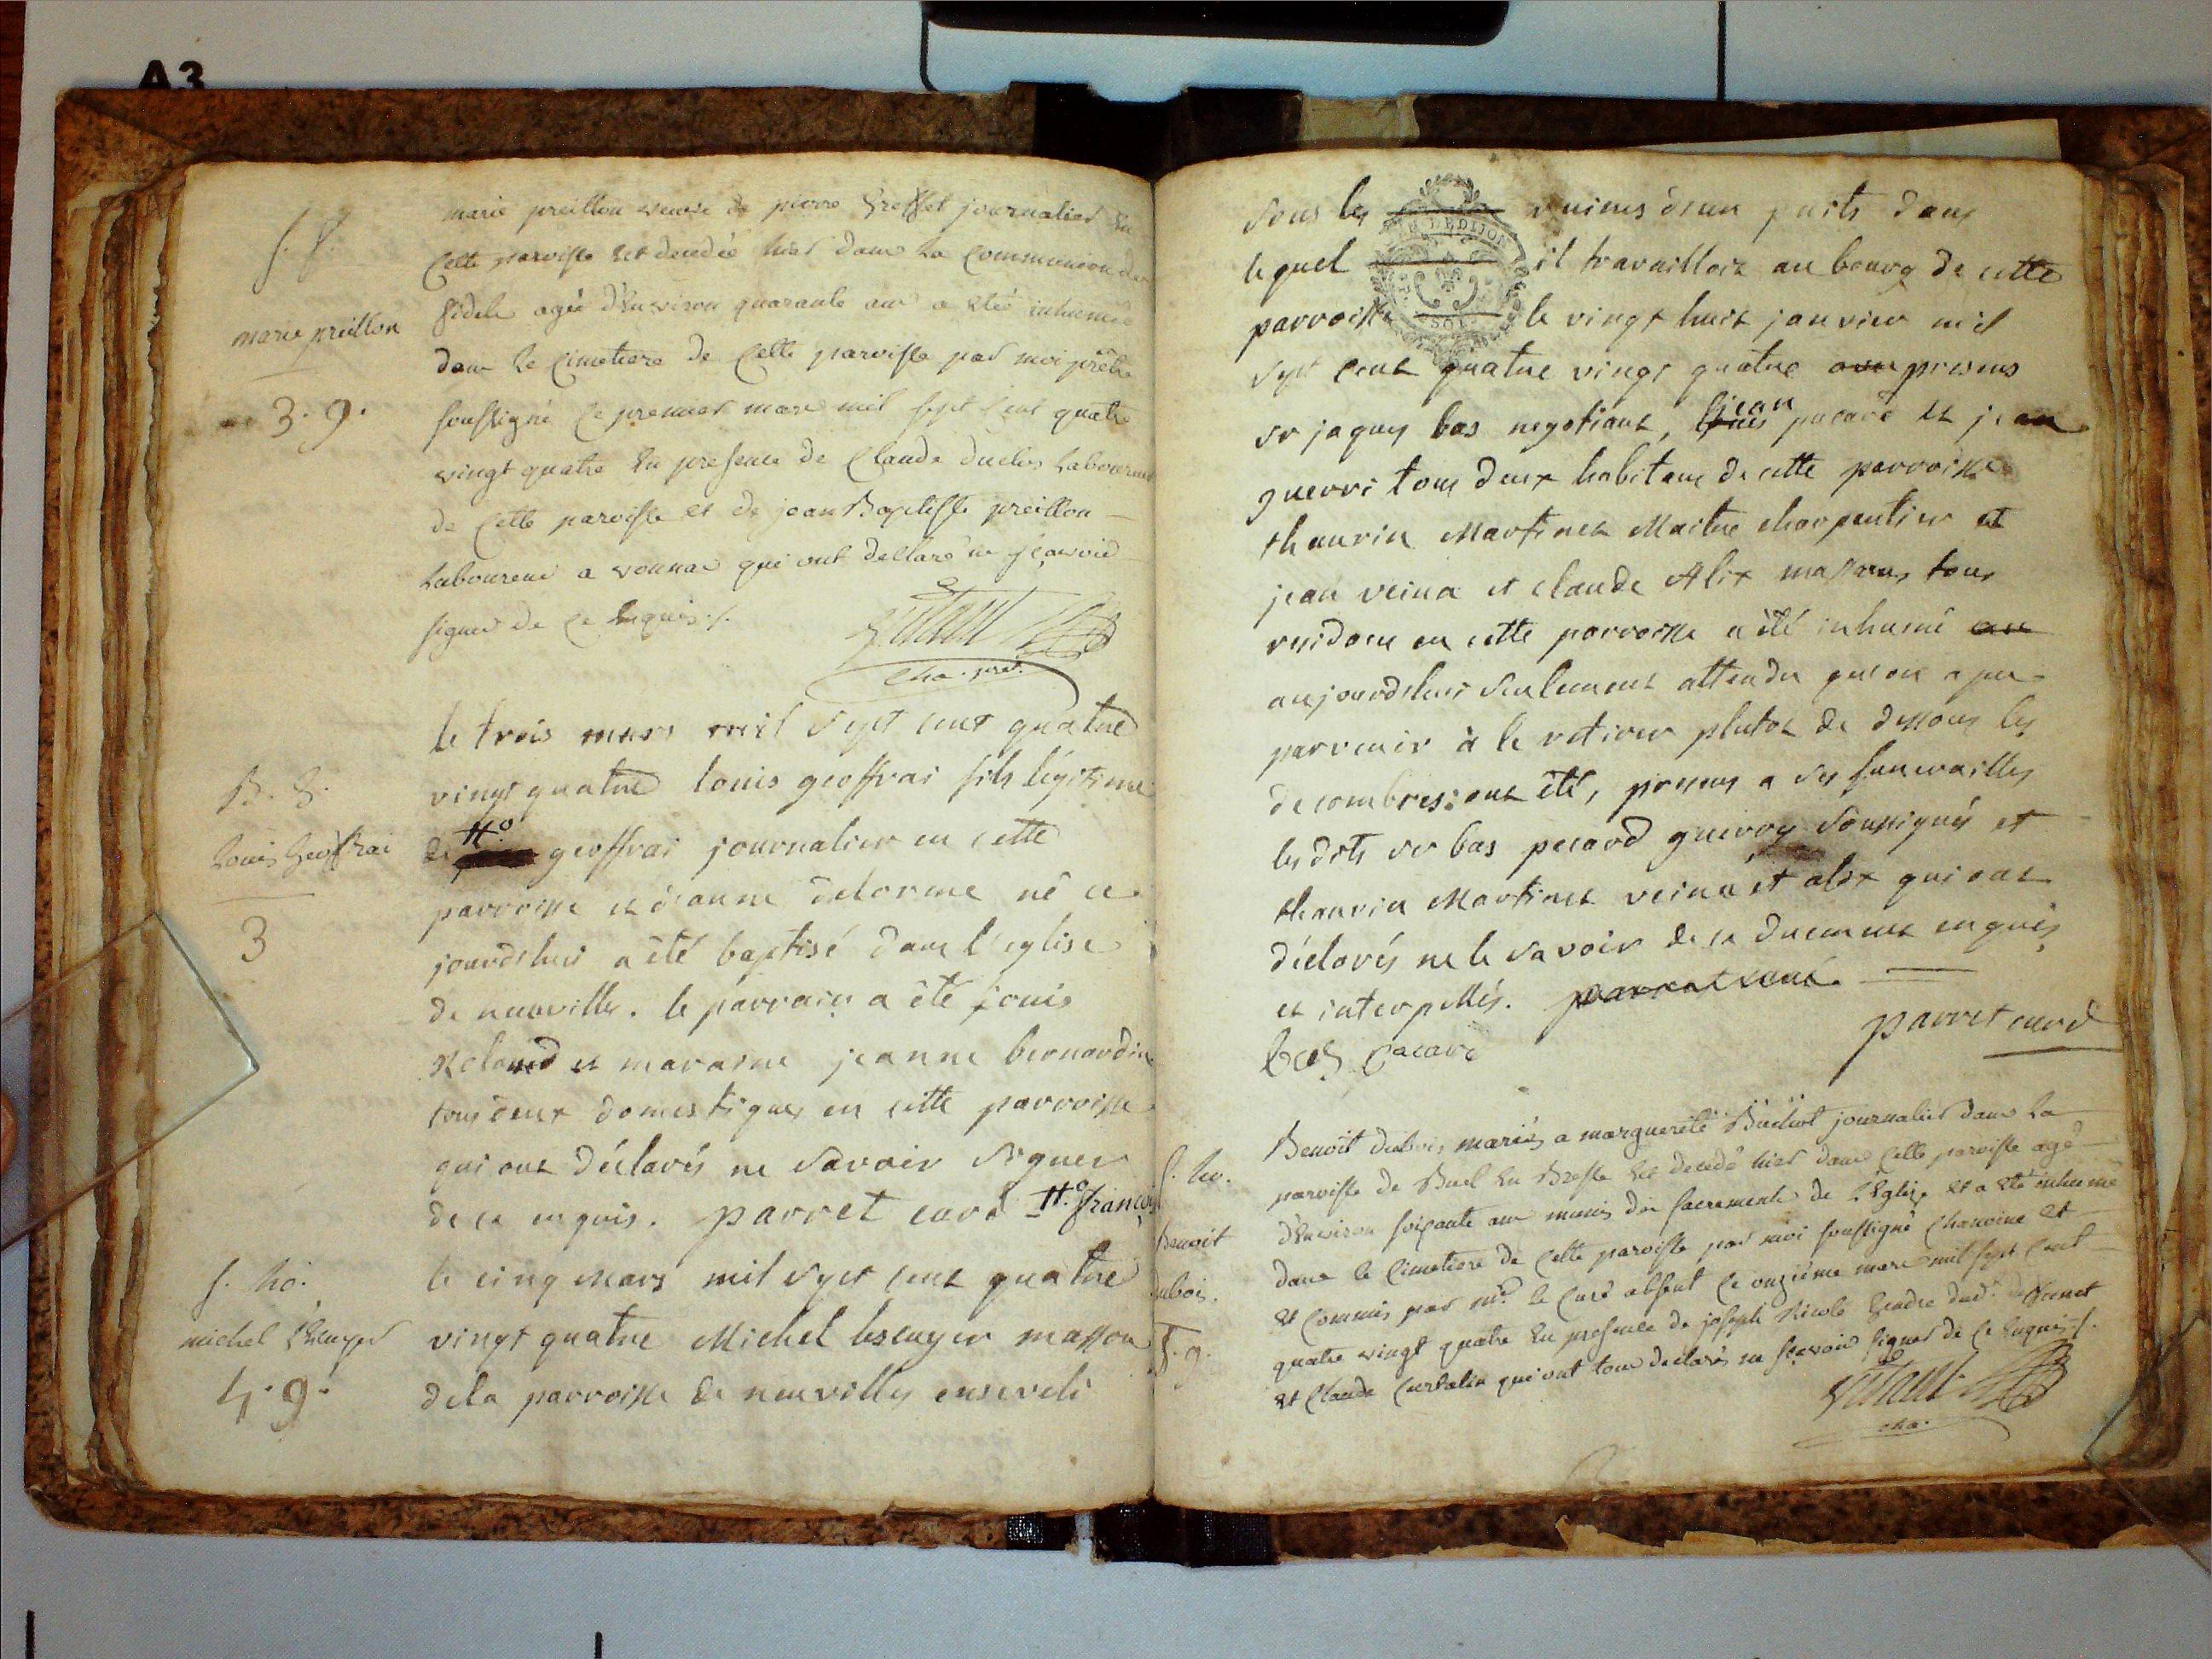 A3
S. f.
marie preillon
3. 9.
marie preillon veuve de pierre Greffet journalier en
cette paroisse est decedée hier dans la Communion des
fideles agée d'environ quarante ans a etée inhumée
dans le cimetiere de cette paroisse par moi prêtre
soussigné ce premier mars mil sept cent quatre
vingt quatre en presence de Claude duclos laboureur
de cette paroisse et de jean Baptiste preillon
laboureur a vonnas qui ont declaré ne sçavoir
signer de ce enquis ./.
cha. pret.
B. S.
Louis Geoffrai
3
le trois mars mil sept cent quatre
vingt quatre louis geoffrai fils légitime
de #o geoffrai journalier en cette
parroisse et d'anne delorme né ce
jourdhui a été baptisé dans l'eglise
de neuvilles. le parrain a été louis
et maraine jeanne bernardin
tous deux domestiques en cette parroisse
qui ont déclarés ne savoir signer
de ce enquis. parret curé #o françois
S. ho.
michel lecuyer
4. 9.
le cinq mars mil sept cent quatre
vingt quatre Michel lescuyer masson
de la parroisse de neuvilles enseveli
sous les ruines d'un puits dans
lequel il travailloit au bourg de cette
parroisse le vingt huit janvier mil
DE DIJON
SOL
sept cent quatre vingt quatre aux presens
sr jaques bas negotiant, jean pacard et jean
guerri tous deux habitans de cette parroisse
thaurin Martinet Maitre charpentier et
jean veina et claude Alix massons tous
residans en cette parroisse a été inhumé au
aujourdhui seulement attendu qu'on a pu
parvenir à le retirer plutot de dessous les
decombres: ont été, presens a ses funerailles
les dits sr bas pacard guerry soussignés et
thaurin Martinet veina et alix qui ont
déclarés ne le savoir de ce duement enquis
et interpellés. parret curé
parret curé
bas pacard
S. ho.
benoit
dubois.
5. 9.
Benoit dubois, mariés a marguerite Buchot journalier dans la
paroisse de Buel en Bresse est decedé hier dans cette paroisse agé
d'environ soixante ans munis des sacrements de l'Eglise et a eté inhumé
dans le Cimetiere de cette paroisse par moi soussigné chanoine et
et commis par mr. le Curé absent ce onzième mars mil sept cent
quatre vingt quatre en presence de joseph Nicole Gendre dud. deffunct
et Claude Curtalin qui ont tous declarés ne sçavoir signer de ce enquis ./.
cha.